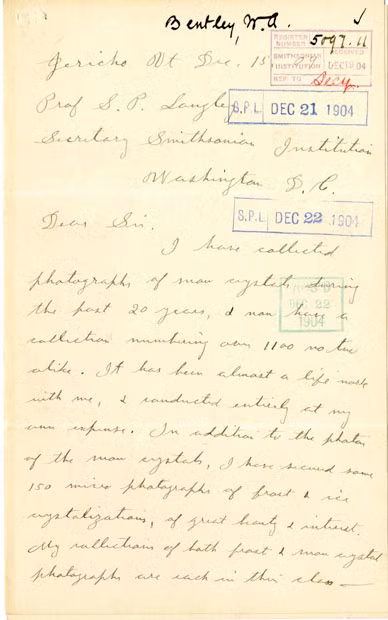 Bentley, W.A.
REGISTER NUMBER 5097.11
SMITHSONIAN INSTITUTION
RECEIVED DEC 1904
REF. TO Secy.
Jericho Vt Dec. 15
Prof S. P. Langley
S.P.L. DEC 21 1904
Secretary Smithsonian Institution
Washington D. C.
S.P.L. DEC 22 1904
Dear Sir.
I have collected
photographs of snow crystals during
the past 20 years, & now have a
DEC 22
1904
collection numbering over 1100 no two
alike. It has been almost a life work
with me, & conducted entirely at my
own expense. In addition to the photos
of the snow crystals, I have secured some
150 micro photographs of frost & ice
crystalizations, of great beauty & interest.
My collections of both frost & snow crystal
photographs are each in their class —